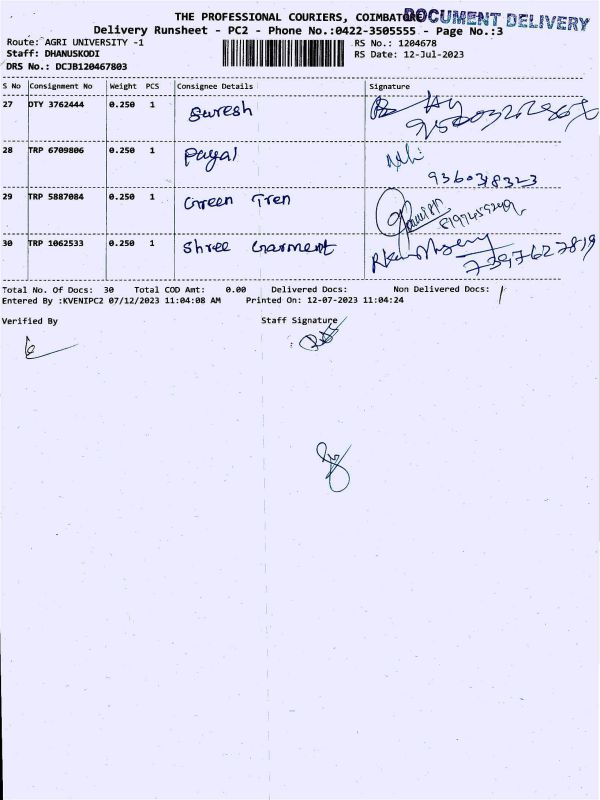 THE PROFESSIONAL COURIERS, COIMBATORE
DOCUMENT DELIVERY
Delivery Runsheet - PC2 - Phone No.:0422-3505555 - Page No.:3
Route: AGRI UNIVERSITY -1
RS No.: 1204678
Staff: DHANUSKODI
RS Date: 12-Jul-2023
DRS No.: DCJB120467803
S No Consignment No Weight PCS Consignee Details Signature
27 DTY 3762444 0.250 1 Suresh
28 TRP 6709806 0.250 1 Payal
9360318323
29 TRP 5887084 0.250 1 Green Tren
30 TRP 1062533 0.250 1 Shree Garment
7397627819
Total No. Of Docs: 30 Total COD Amt: 0.00 Delivered Docs: Non Delivered Docs:
Entered By :KVENIPC2 07/12/2023 11:04:08 AM Printed On: 12-07-2023 11:04:24
Verified By Staff Signature